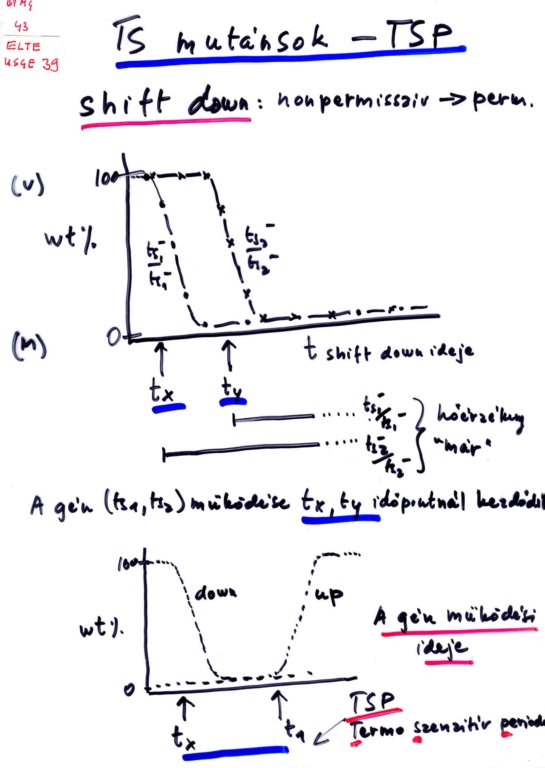 43
ELTE
USGE 39
TS mutánsok – TSP
shift down: nonpermissziv → perm.
(V)
100
wt %
ts₁⁻/ts₁⁻
ts₂⁻/ts₂⁻
0
(M)
t shift down ideje
tx
ty
hőérzékeny
"már"
A gén (ts₁, ts₂) működése tx, ty időpontnál kezdődik
100
down
up
wt %
0
A gén működési
ideje
tx
TSP
Termo szenzitiv periódu